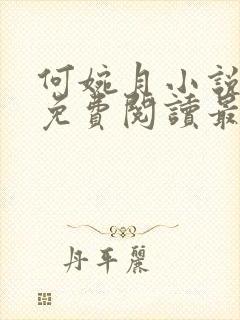 何婉月小說
免費閱讀最
丹平麗